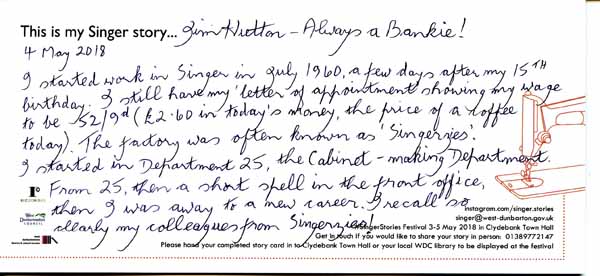 This is my Singer story... Jim Hutton – Always a Bankie!
4 May 2018
I started work in Singer in July 1960, a few days after my 15TH
birthday. I still have my 'letter of appointment' showing my wage
to be 52/9d (£2.60 in today's money, the price of a coffee
today). The factory was often known as 'Singerzies'.
I started in Department 25, the Cabinet-making Department.
From 25, then a short spell in the front office,
then I was away to a new career. I recall so
clearly my colleagues from Singerzies!
instagram.com/singer.stories
singer@west-dunbarton.gov.uk
SingerStories Festival 3-5 May 2018 in Clydebank Town Hall
Get in touch if you would like to share your story in person: 01389772147
Please hand your completed story card in to Clydebank Town Hall or your local WDC library to be displayed at the festival
West
Dunbartonshire
COUNCIL